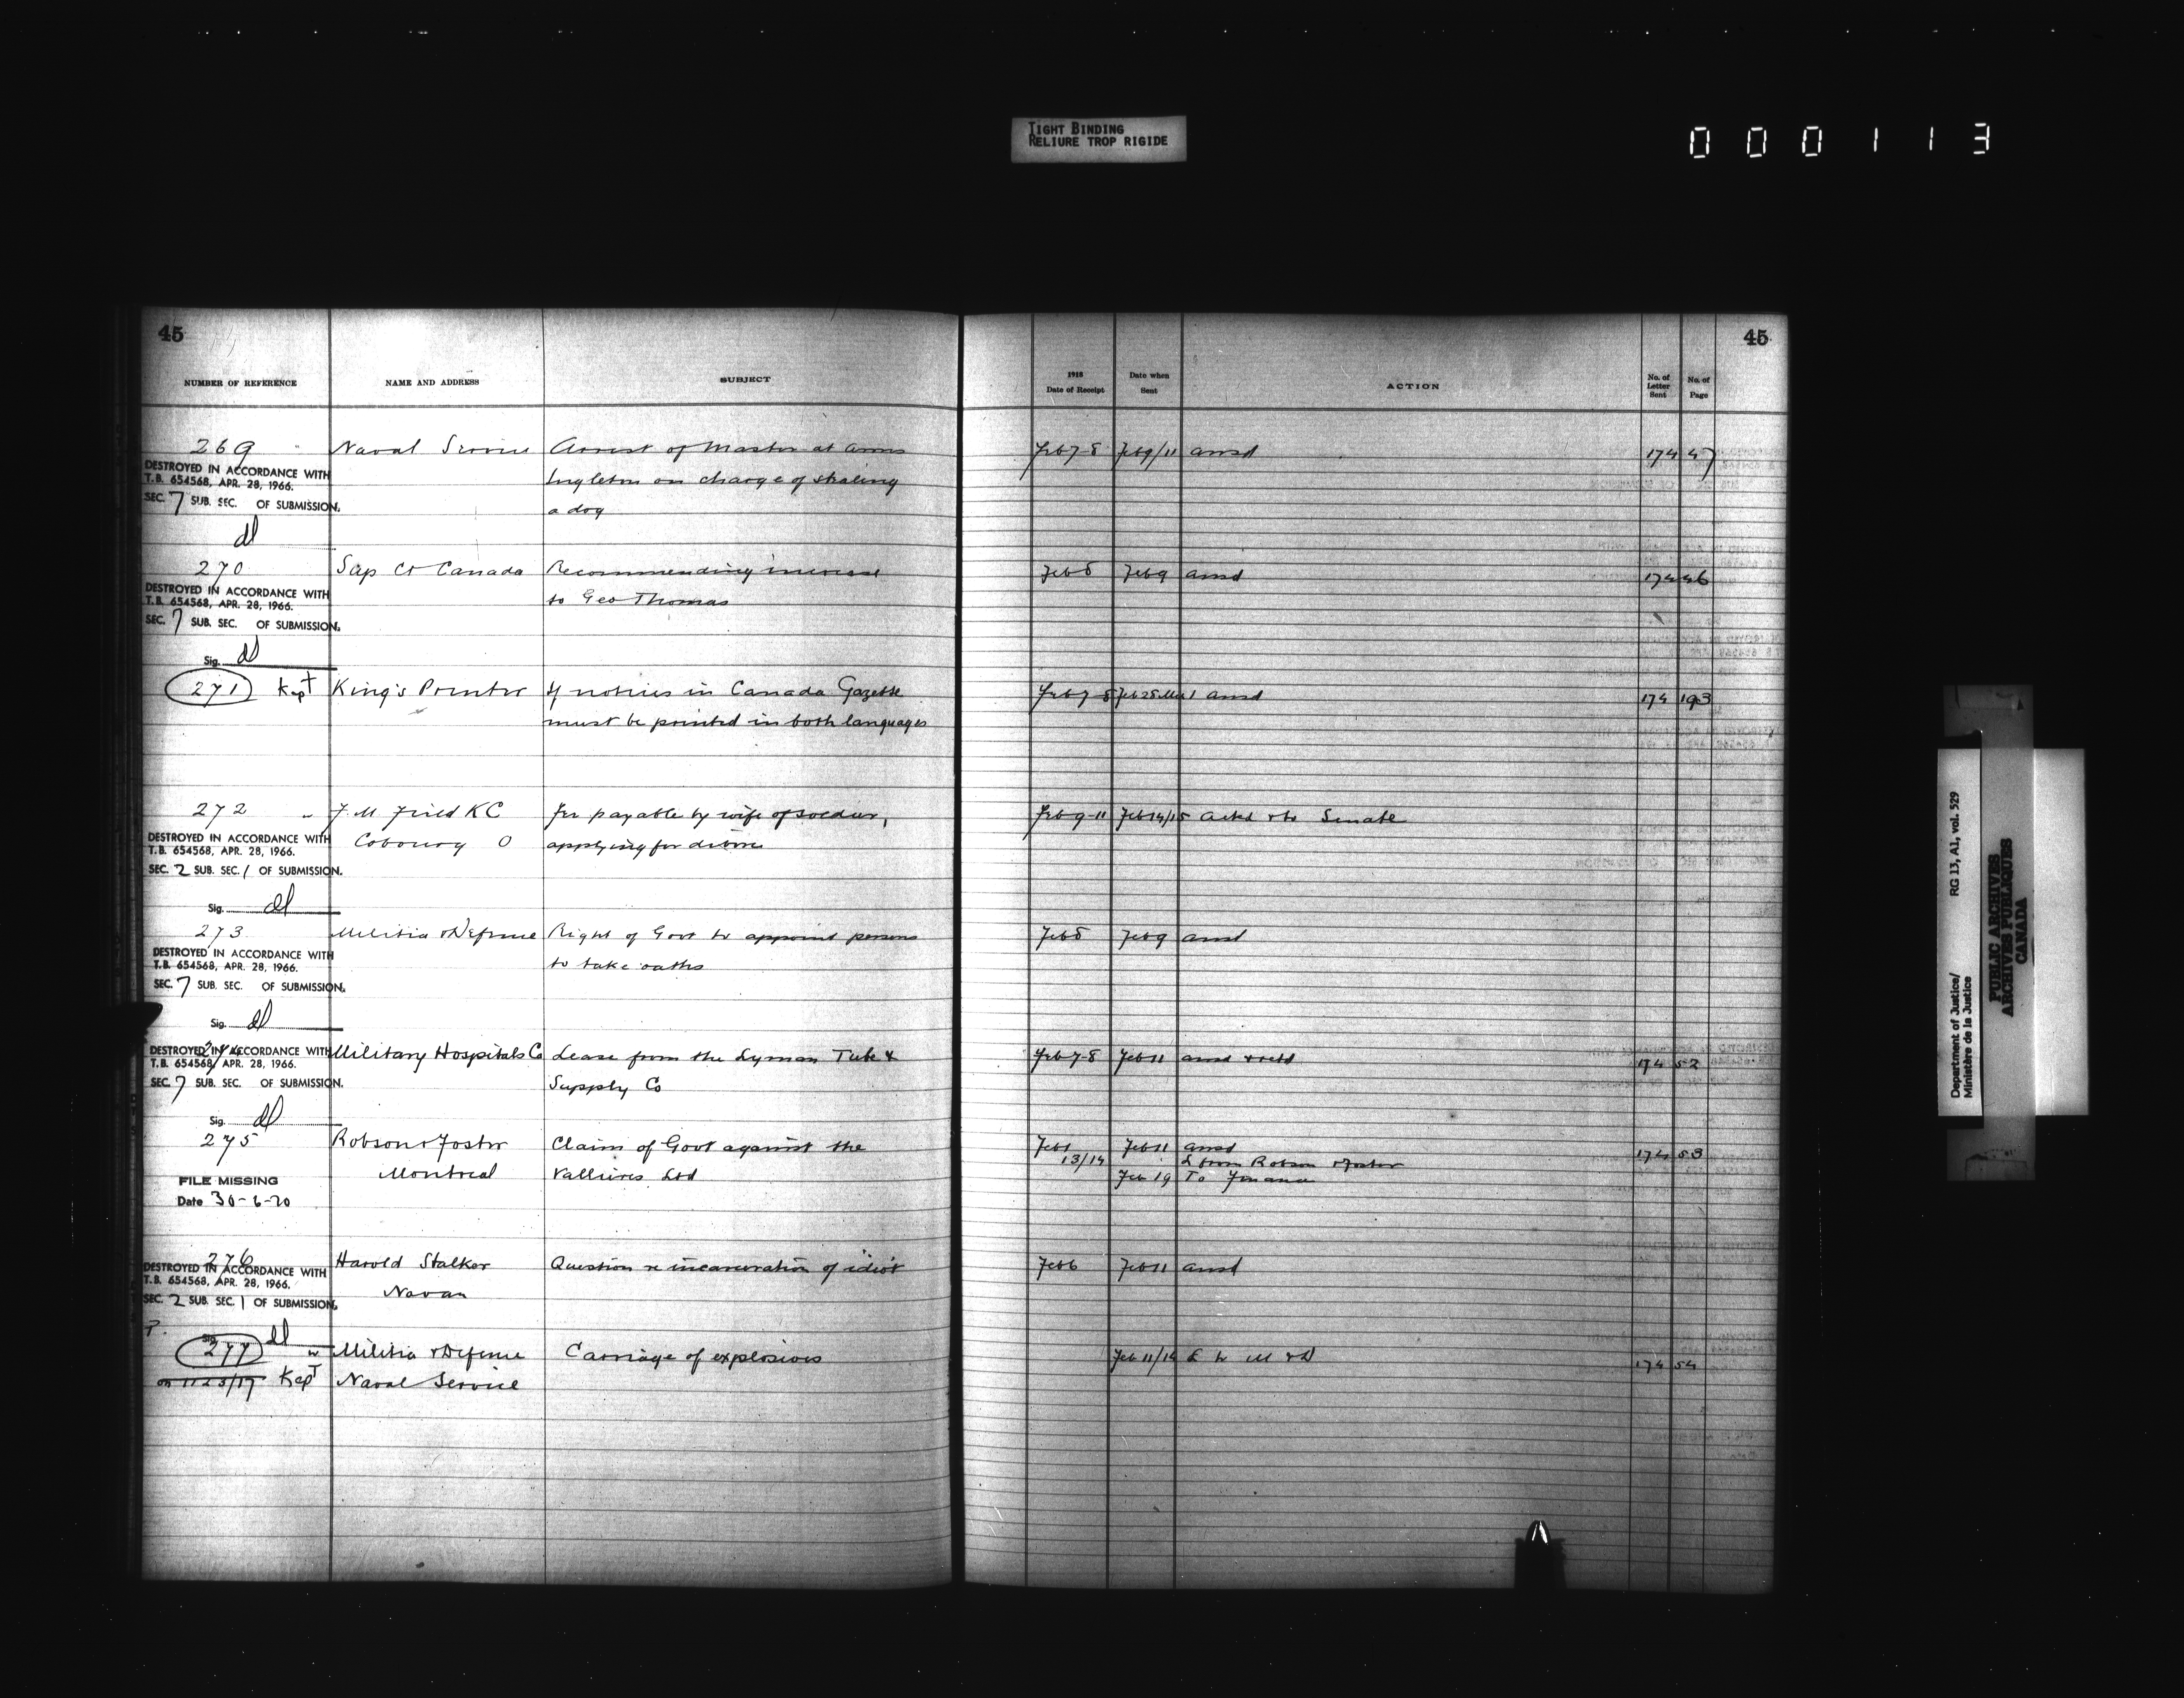 TIGHT BINDING
RELIURE TROP RIGIDE
0 0 0 1 1 3
45
NUMBER OF REFERENCE NAME AND ADDRESS SUBJECT
269 Naval Service Arrest of Master at Arms
DESTROYED IN ACCORDANCE WITH
T.B. 654568, APR. 28, 1966.
Ingleton on charge of stealing
SEC. 7 SUB. SEC. OF SUBMISSION.
a dog
dl
270 Sup Ct Canada Recommending increase
DESTROYED IN ACCORDANCE WITH
T.B. 654568, APR. 28, 1966.
to Geo Thomas
SEC. 7 SUB. SEC. OF SUBMISSION.
Sig. dl
271 Kept King's Printer If notices in Canada Gazette
must be printed in both languages
272 F M Field KC Fee payable by wife of soldier,
DESTROYED IN ACCORDANCE WITH
T.B. 654568, APR. 28, 1966.
Cobourg O applying for divorce
SEC. 2 SUB. SEC. 1 OF SUBMISSION.
Sig. dl
273 Militia & Defense Right of Govt to appoint persons
DESTROYED IN ACCORDANCE WITH
T.B. 654568, APR. 28, 1966.
to take oaths
SEC. 7 SUB. SEC. OF SUBMISSION.
Sig. dl
274 Military Hospitals Co Lease from the Lyman Tube &
DESTROYED IN ACCORDANCE WITH
T.B. 654568, APR. 28, 1966.
Supply Co
SEC. 7 SUB. SEC. OF SUBMISSION.
Sig. dl
275 Robson & Foster Claim of Govt against the
Montreal Vallieres Ltd
FILE MISSING
Date 30-6-70
276 Harold Stalker Question re incarceration of idiot
DESTROYED IN ACCORDANCE WITH
T.B. 654568, APR. 28, 1966.
Navan
SEC. 2 SUB. SEC. 1 OF SUBMISSION.
P.
Sig. dl
277 Militia & Defense Carriage of explosives
Kept Naval Service
45
1918
Date of Receipt Date when Sent ACTION No. of Letter Sent No. of Page
Feb 7-8 Feb 9/11 ansd 174 47
Feb 8 Feb 9 ansd 174 46
Feb 7-8 Feb 28 Mar 1 ansd 174 193
Feb 9-11 Feb 14/15 Ackd & to Senate
Feb 8 Feb 9 ansd
Feb 7-8 Feb 11 ansd & retd 174 52
Feb Feb 11 ansd 174 53
13/14 L from Robson & Foster
Feb 19 To Finance
Feb 6 Feb 11 ansd
Feb 11/14 L to M & D 174 54
Department of Justice/ RG 13, A1, vol. 529
Ministère de la Justice
PUBLIC ARCHIVES
ARCHIVES PUBLIQUES
CANADA